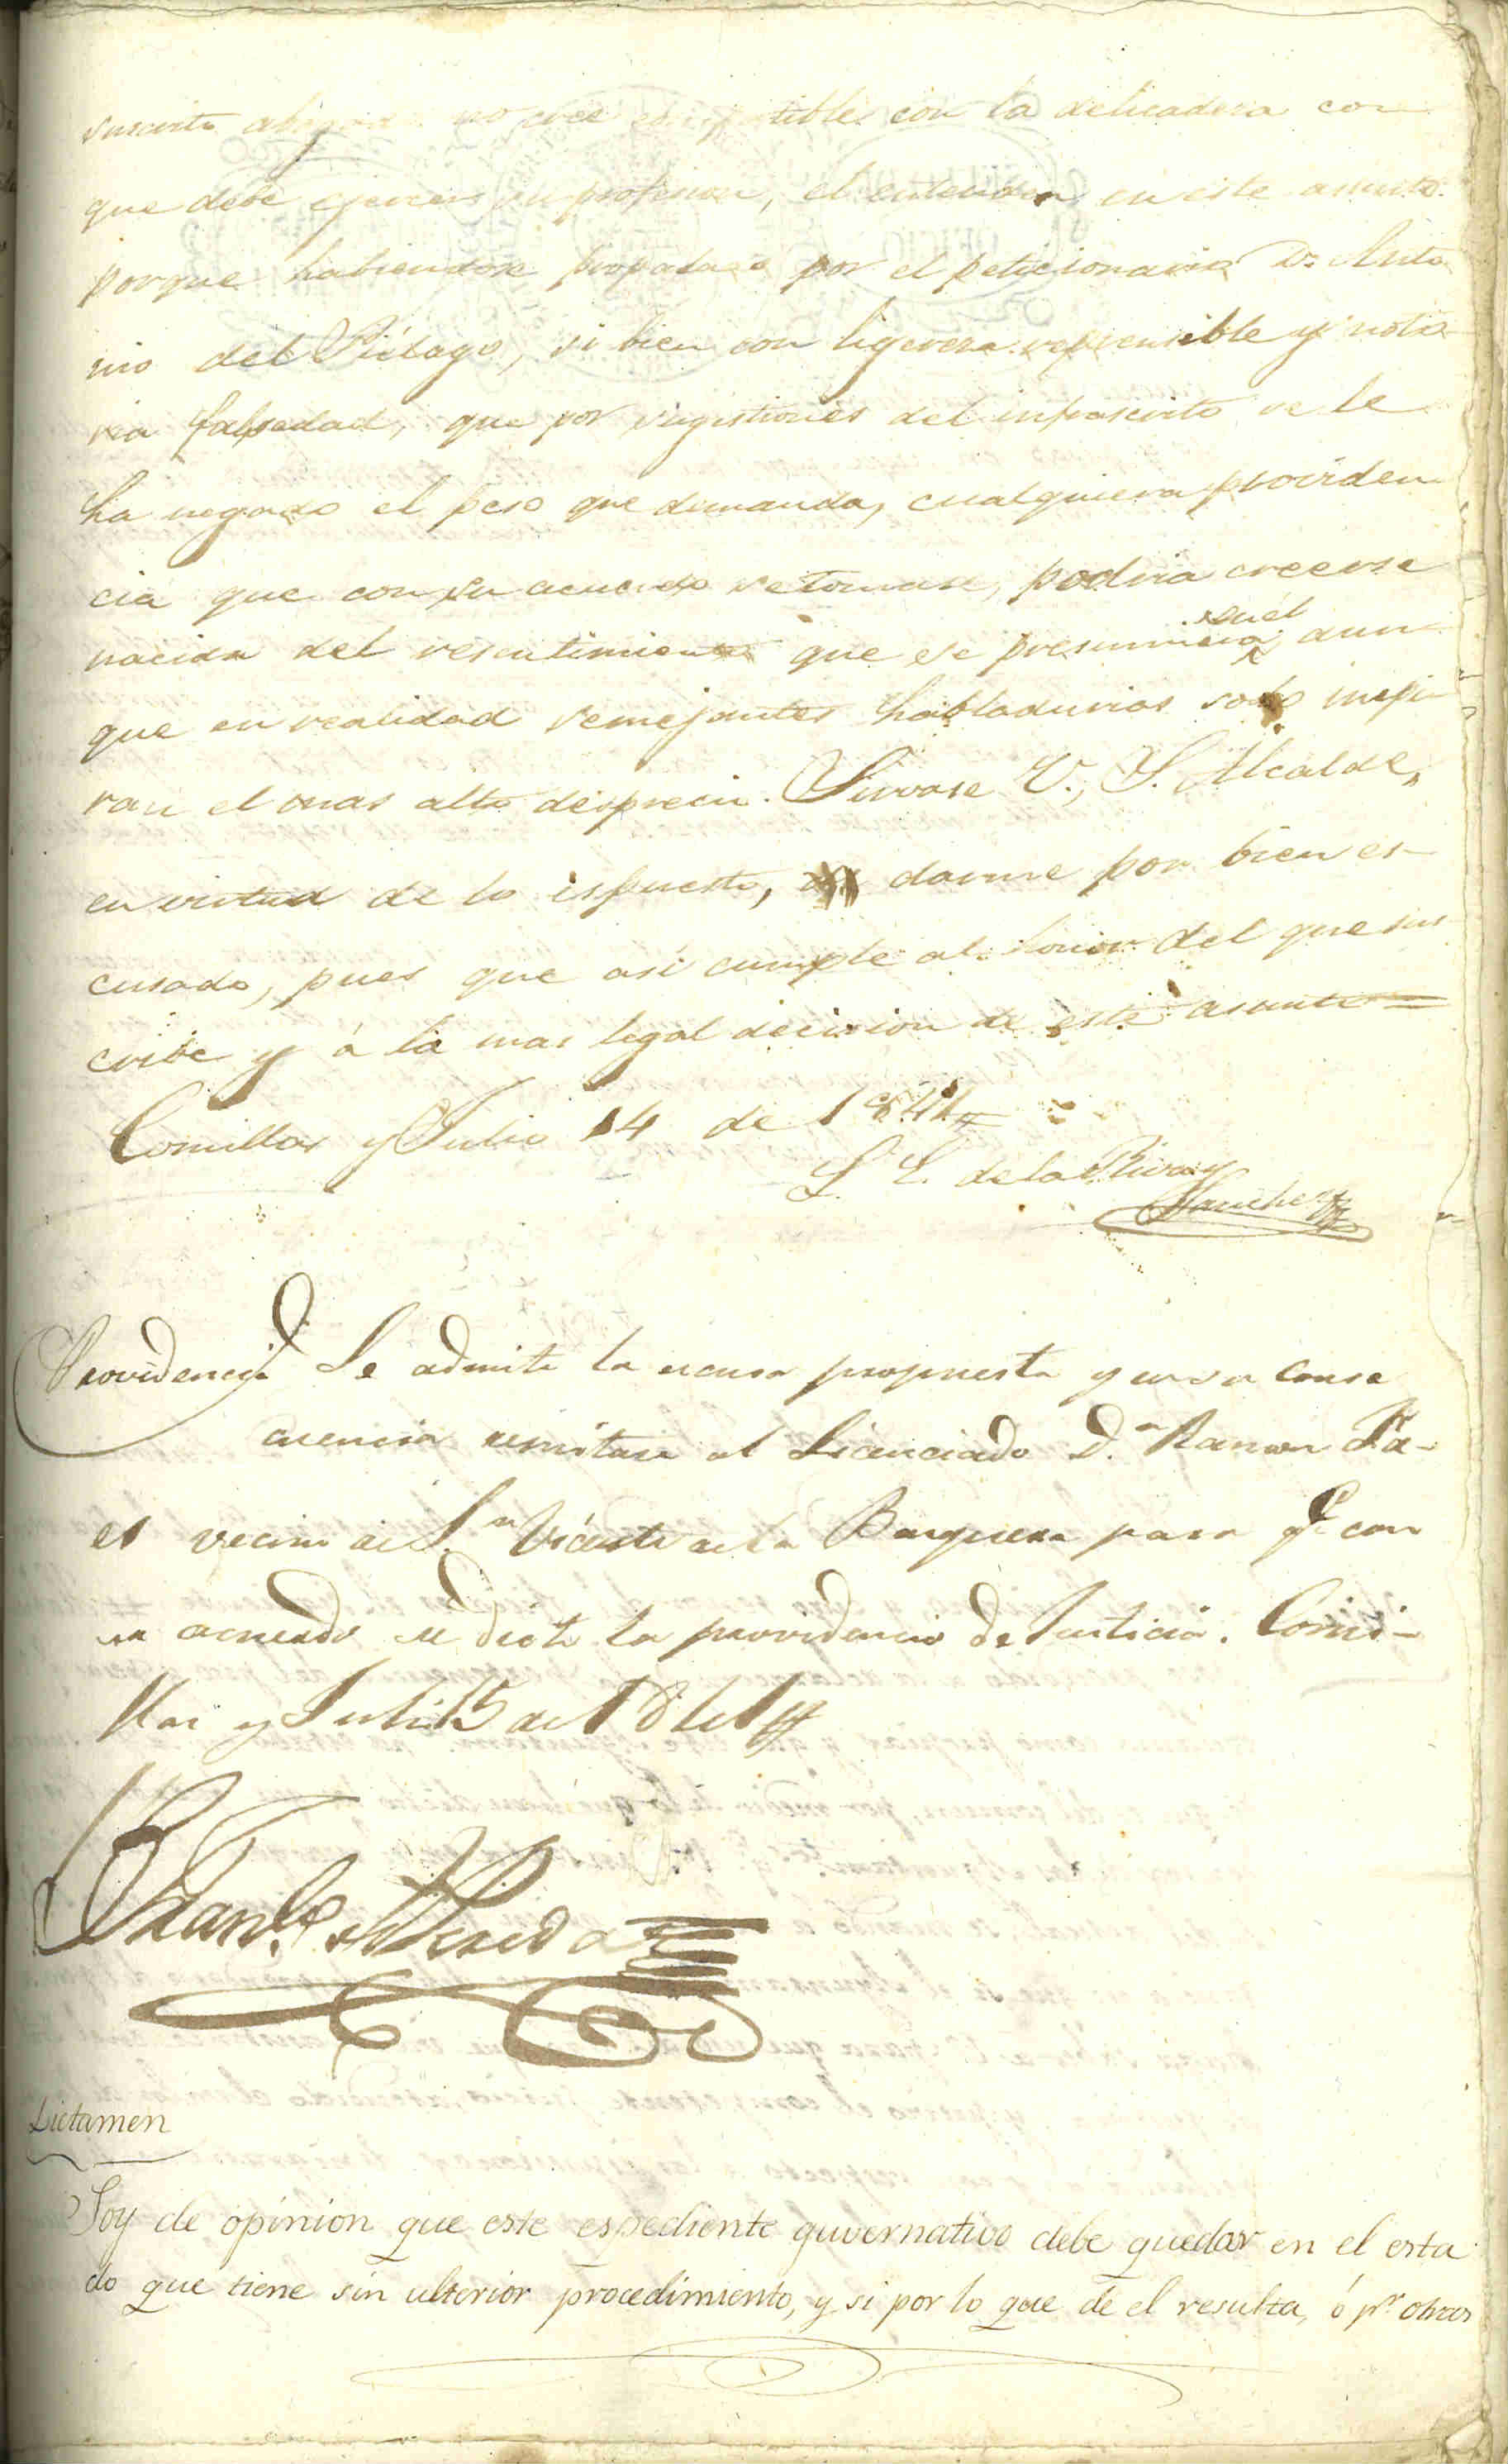 suscrito abogado no cree compatible con la delicadeza con
que debe ejercer su profesion, el entender en este asunto.
porque habiendose propalado por el peticionario Dn. Anto
nio del Piélago, si bien con ligereza reprensible y noto
ria falsedad, que por sugestiones del infrascrito se le
ha negado el peso que demanda, cualquiera providen
cia que con su acuerdo se tomase, podria creerse
nacida del resentimiento que se presumiera en el, aun
que en realidad semejantes habladurias solo inspi
ran el mas alto desprecio. Sirvase V., S. Alcalde,
en virtud de lo espuesto, darme por bien es-
cusado, pues que asi cumple al honor del que sus
cribe y á la mas legal decision de este asunto =
Comillas y Julio 14 de 1844
L. de la Riva y
Sanchez
Providencia Se admite la escusa propuesta y en su conse
cuencia remitase al Licenciado D.n Ramon
es vecino de S.n Vicente de la Barquera para qe. con
su acuerdo se dicte la providencia de Justicia. Comi-
llas y Julio 15 de 1844
Fran.co de Pereda
Dictamen
Soy de opinion que este espediente guvernativo debe quedar en el esta
do que tiene sin ulterior procedimiento, y si por lo que de el resulta, ó pr. otras